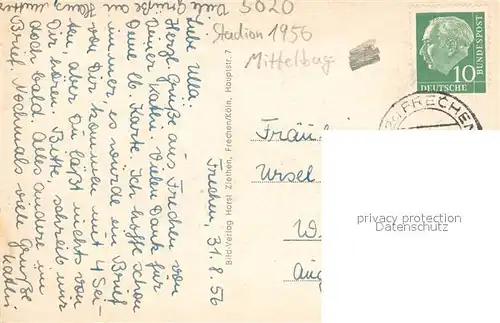 Viele Grüße an
5020
Stadion 1956
Mittelbug
Frechen, 31.8.56
Liebe Ulla!
Herzl. Grüße aus Frechen von
Deiner Kathi. Vielen Dank für
Deine lb. Karte. Ich hoffe schon
immer, es würde ein Brief
von Dir kommen mit 4 Sei-
ten, aber Du läßt nicht von
Dir hören. Bitte, schreib mir
doch bald. Alles andere im
Brief. Nochmals viele Grüße
Kathi
Bild-Verlag Horst Ziethen, Frechen/Köln, Hauptstr. 7
10
DEUTSCHE
BUNDESPOST
FRECHEN
Fräul
Ursel
W
Aug
privacy protection
Datenschutz